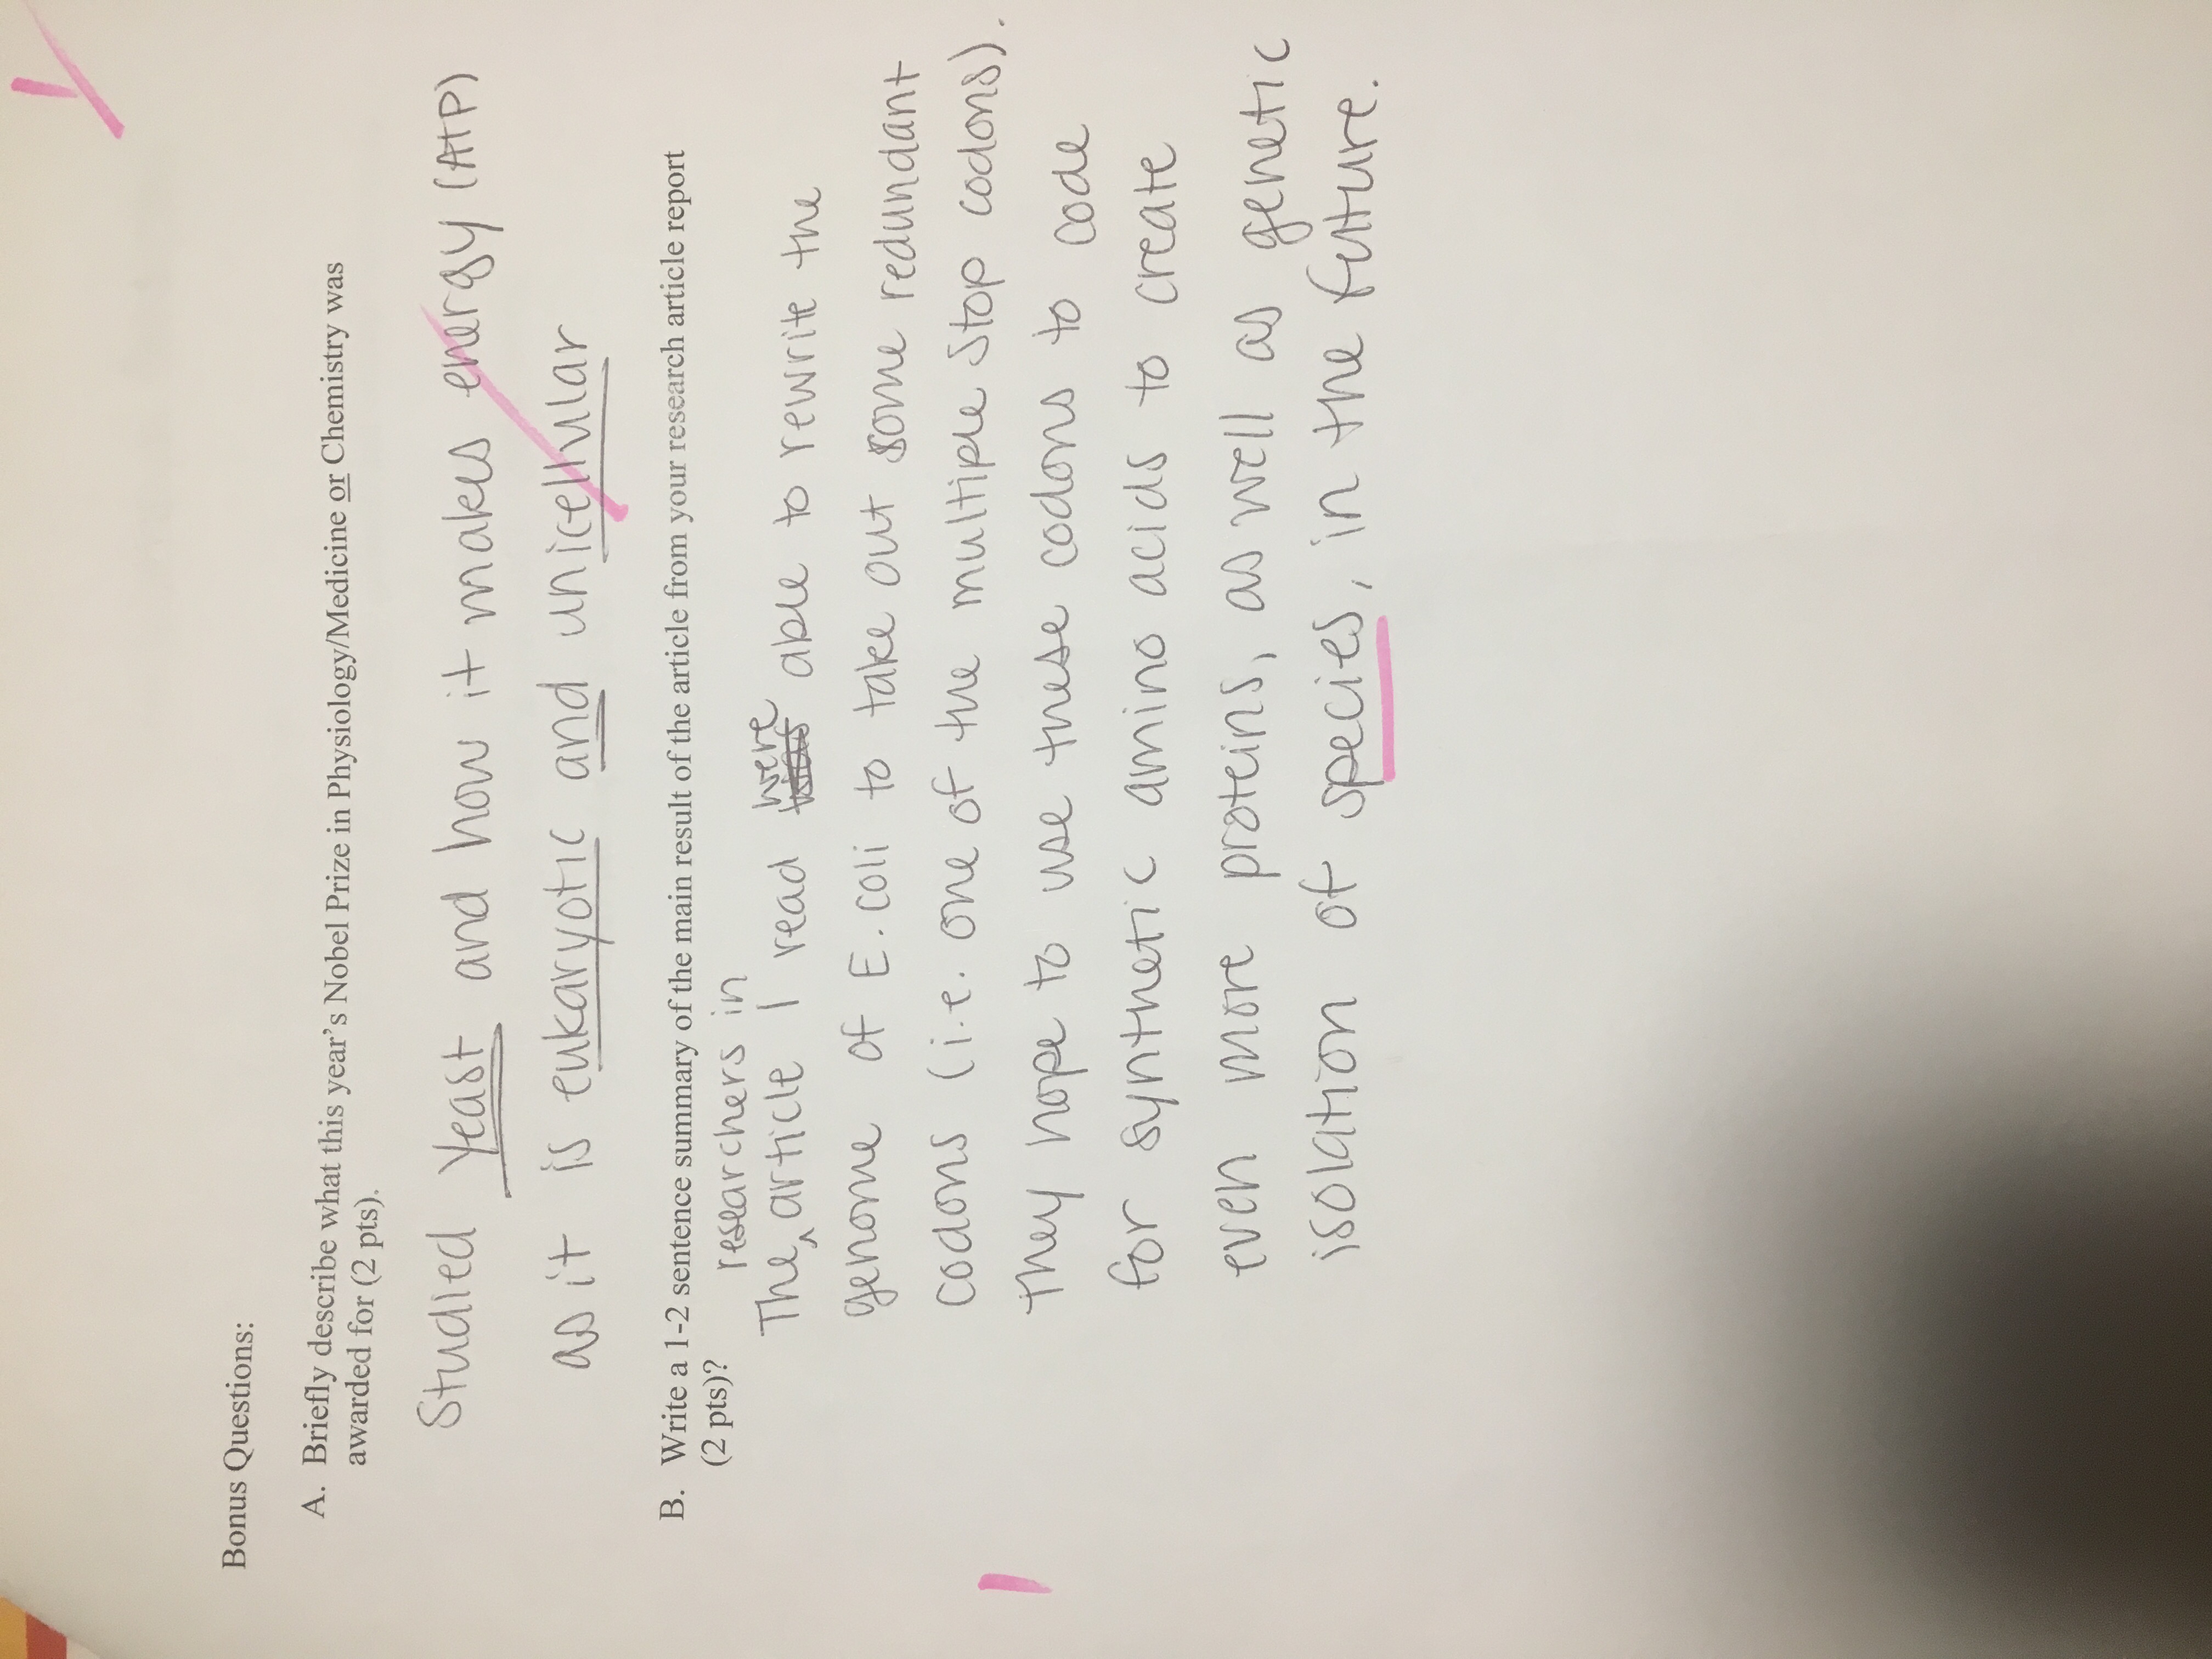 Bonus Questions:
A. Briefly describe what this year's Nobel Prize in Physiology/Medicine or Chemistry was
awarded for (2 pts).
Studied Yeast and how it makes energy (ATP)
as it is eukaryotic and unicellular
B. Write a 1-2 sentence summary of the main result of the article from your research article report
(2 pts)?
researchers in
were
The ^ article I read was able to rewrite the
genome of E. coli to take out some redundant
codons (i.e. one of the multiple stop codons).
They hope to use these codons to code
for synthetic amino acids to create
even more proteins, as well as genetic
isolation of species, in the future.